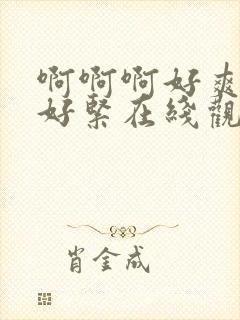 啊啊啊好爽
好緊在綫觀
肖金成